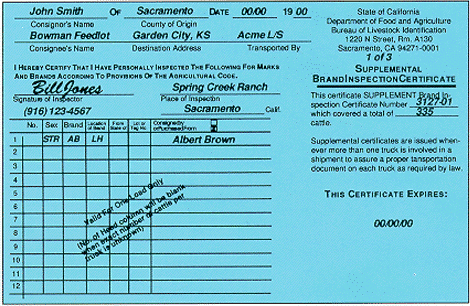 John Smith OF Sacramento DATE 00/00 19 00
Consignor's Name County of Origin
Bowman Feedlot Garden City, KS Acme L/S
Consignee's Name Destination Address Transported By
I HEREBY CERTIFY THAT I HAVE PERSONALLY INSPECTED THE FOLLOWING FOR MARKS
AND BRANDS ACCORDING TO PROVISIONS OF THE AGRICULTURAL CODE.
Bill Jones Spring Creek Ranch
Signature of Inspector Place of Inspection
(916) 123-4567 Sacramento Calif.
No. Sex Brand Location of Brand From State of Lot or Tag No. Consigned by or Purchased From
1 STR AB LH Albert Brown
2
3
4
5
6
7
8
9
10
11
12
Valid For One Load Only
(No. of Head column will be blank
when exact number of cattle per
truck is unknown)
State of California
Department of Food and Agriculture
Bureau of Livestock Identification
1220 N Street, Rm. A130
Sacramento, CA 94271-0001
1 of 3
SUPPLEMENTAL
BRAND INSPECTION CERTIFICATE
This certificate SUPPLEMENT Brand In-
spection Certificate Number 3127-01
which covered a total of 335
cattle.
Supplemental certificates are issued when-
ever more than one truck is involved in a
shipment to assure a proper tansportation
document on each truck as required by law.
THIS CERTIFICATE EXPIRES:
00/00/00